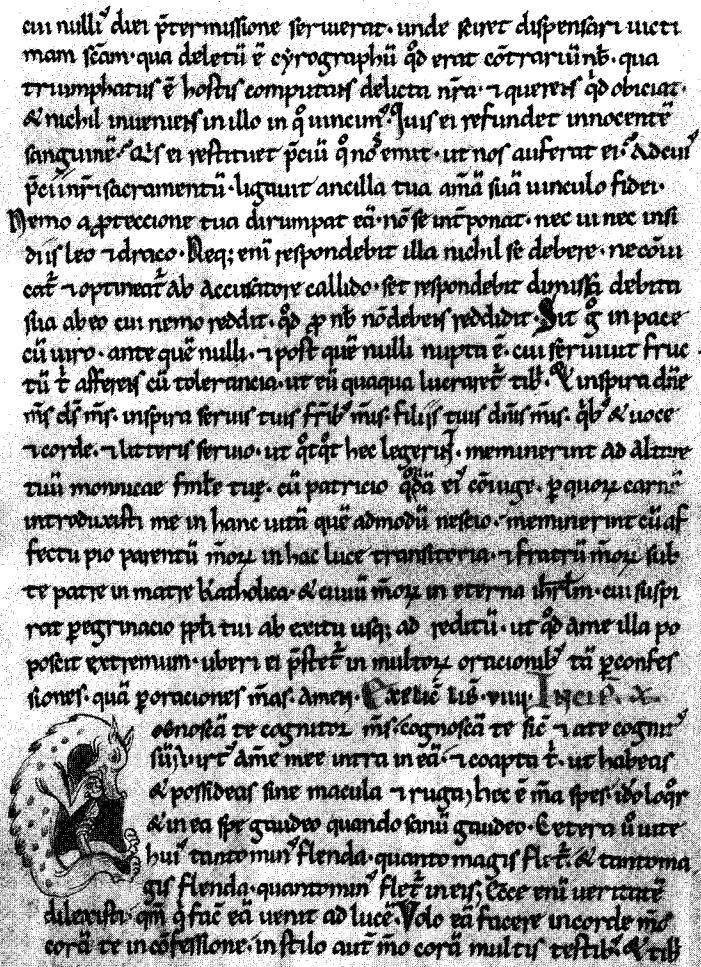 cui nulli' diei p̄termissione seruierat· unde sciret dispensari uicti
mam sc̄am· qua deletū ē cyrographū qd̄ erat cōtrariū nb̄· qua
triumphatus ē hostis computans delicta nr̄a· ⁊ querens qd̄ obiciat·
& nichil inueniens in illo in q̊ uincim'· Quis ei refundet innocentē
sanguinē· Q's ei restituet p̄ciū q̊ nos emit· ut nos auferat ei· Ad cui'
p̄cii nr̄i sacramentū· ligauit ancilla tua am̄ā suā uinculo fidei·
Nemo a ꝓteccione tua dirumpat eā· nō se int̄ponat· nec ui nec insi
diis leo ⁊ draco· Neq; eni respondebit illa nichil se debere· ne cōui
cat̄ ⁊ optineat̄ ab accusatore callido· set respondebit dimissa debita
sua ab eo cui nemo reddit· qd̄ ꝓ nb̄ nō debens reddidit· Sit g̊ in pace
cū uiro· ante quē nulli· ⁊ post quē nulli nupta ē· cui seruiuit fruc
tū t̄ afferens cū tolerancia· ut eū quaqua lucraret̄ tibi· & inspira dn̄e
m̄s ds̄ m̄s· inspira seruis tuis fr̄ib' m̄is· filiis tuis dn̄is m̄is· q'b' & uoce
⁊ corde· ⁊ litteris seruio· ut q̄tq̄t hec legerint· meminerint ad altare
tuū monnicae famlē tuę· cū patricio quōdā ei' cōiuge· ꝑ quoꝝ carnē
introduxisti me in hanc uitā quē admodū nescio· meminerint cū af
fectu pio parentū m̄oꝝ in hac luce transitoria· ⁊ fratrū m̄oꝝ sub
te patre in matre katholica· & ciuiū m̄oꝝ in eterna ihrl̄m· cui suspi
rat ꝑegrinacio ppl̄i tui ab exitu usq; ad reditū· ut qd̄ a me illa po
poscit extremum· uberi' ei p̄stet̄ in multoꝝ oracionib' tā ꝑ confes
siones· quā ꝑ oraciones m̄as· Amen· Explic̄ lib̄· viiii· Incip̄· X·
ognoscā te cognitor m̄s· cognoscā te sic̄ ⁊ a te cognit'
sū· Virt' am̄e mee intra in eā· ⁊ coapta t̄· ut habeas
& possideas sine macula ⁊ ruga· hec ē m̄a spes· ido loq̊r
& in ea spe gaudeo quando sanū gaudeo· Cetera ū uite
hui' tanto min' flenda· quanto magis flet̄· & tanto ma
gis flenda· quanto min' flet̄ in eis· Ecce eni ueritatē
dilexisti· qm̄ q̄ fac̄ eā uenit ad lucē· Volo eā facere in corde m̄o
corā te in cōfessione· in stilo aut̄ m̄o corā multis testib'· & tibi